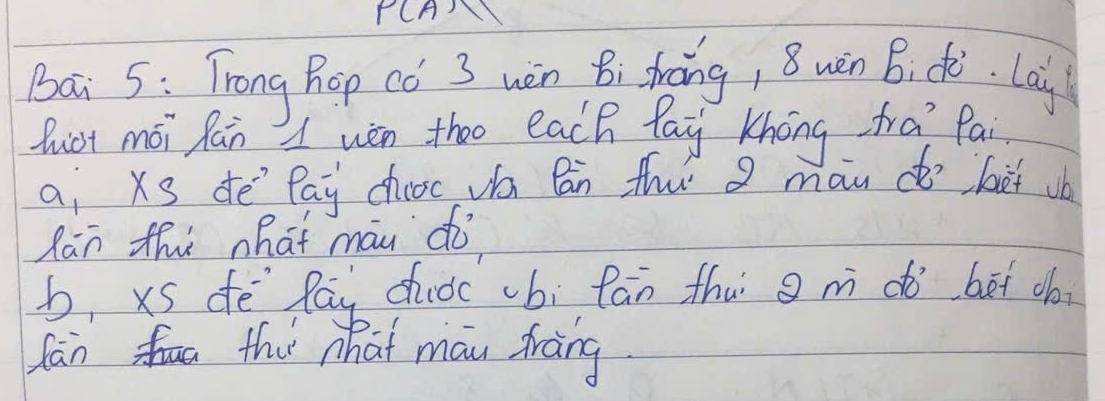 P(A)
Bài 5: Trong hộp có 3 viên bi trắng, 8 viên bi đỏ. Lấy
lượt mỗi lần 1 viên theo cách lấy không trả lại.
a, XS để lấy được vb lần thứ 2 màu đỏ biết vb
lần thứ nhất màu đỏ,
b, XS để lấy được vbi lần thứ 2 m đỏ biết vbi
lần thứ nhất màu trắng.